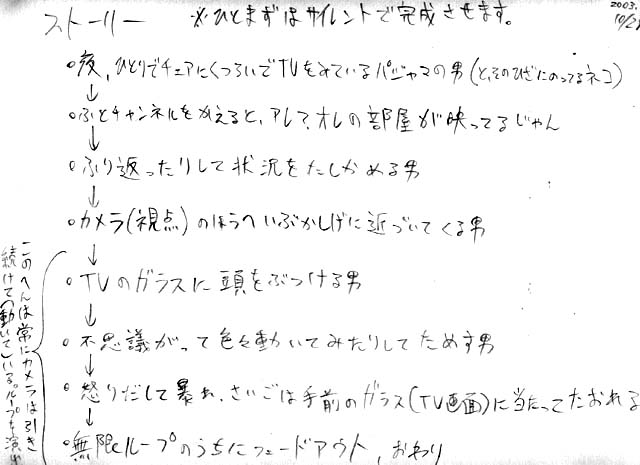 ストーリー ※ひとまずはサイレントで完成させます。
2003.
10/21
○夜、ひとりでチェアにくつろいでTVをみているパジャマの男(と、そのひざにのってるネコ)
↓
○ふとチャンネルをかえると、アレ?オレの部屋が映ってるじゃん
↓
○ふり返ったりして状況をたしかめる男
↓
○カメラ(視点)のほうへいぶかしげに近づいてくる男
↓
○TVのガラスに頭をぶつける男
↓
○不思議がって色々動いてみたりしてためす男
↓
○怒りだして暴れ、さいごは手前のガラス(TV画面)に当たってたおれる
↓
○無限ループのうちにフェードアウト、おわり
このへんは常にカメラは引き
続けて(動いて)いる。ループも